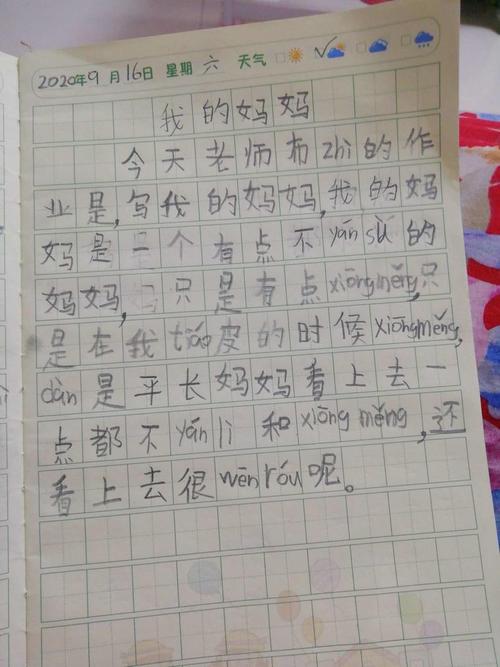 2020年9月16日 星期 六 天气
我的妈妈
今天老师布zhi的作
业是,写我的妈妈,我的妈
妈是一个有点不yán sù的
妈妈,只是有点xiōngměng,只
是在我tiáo皮的时候xiōngměng,
dàn是平长妈妈看上去一
点都不yán lì和xiōng měng,还
看上去很wēn róu呢。